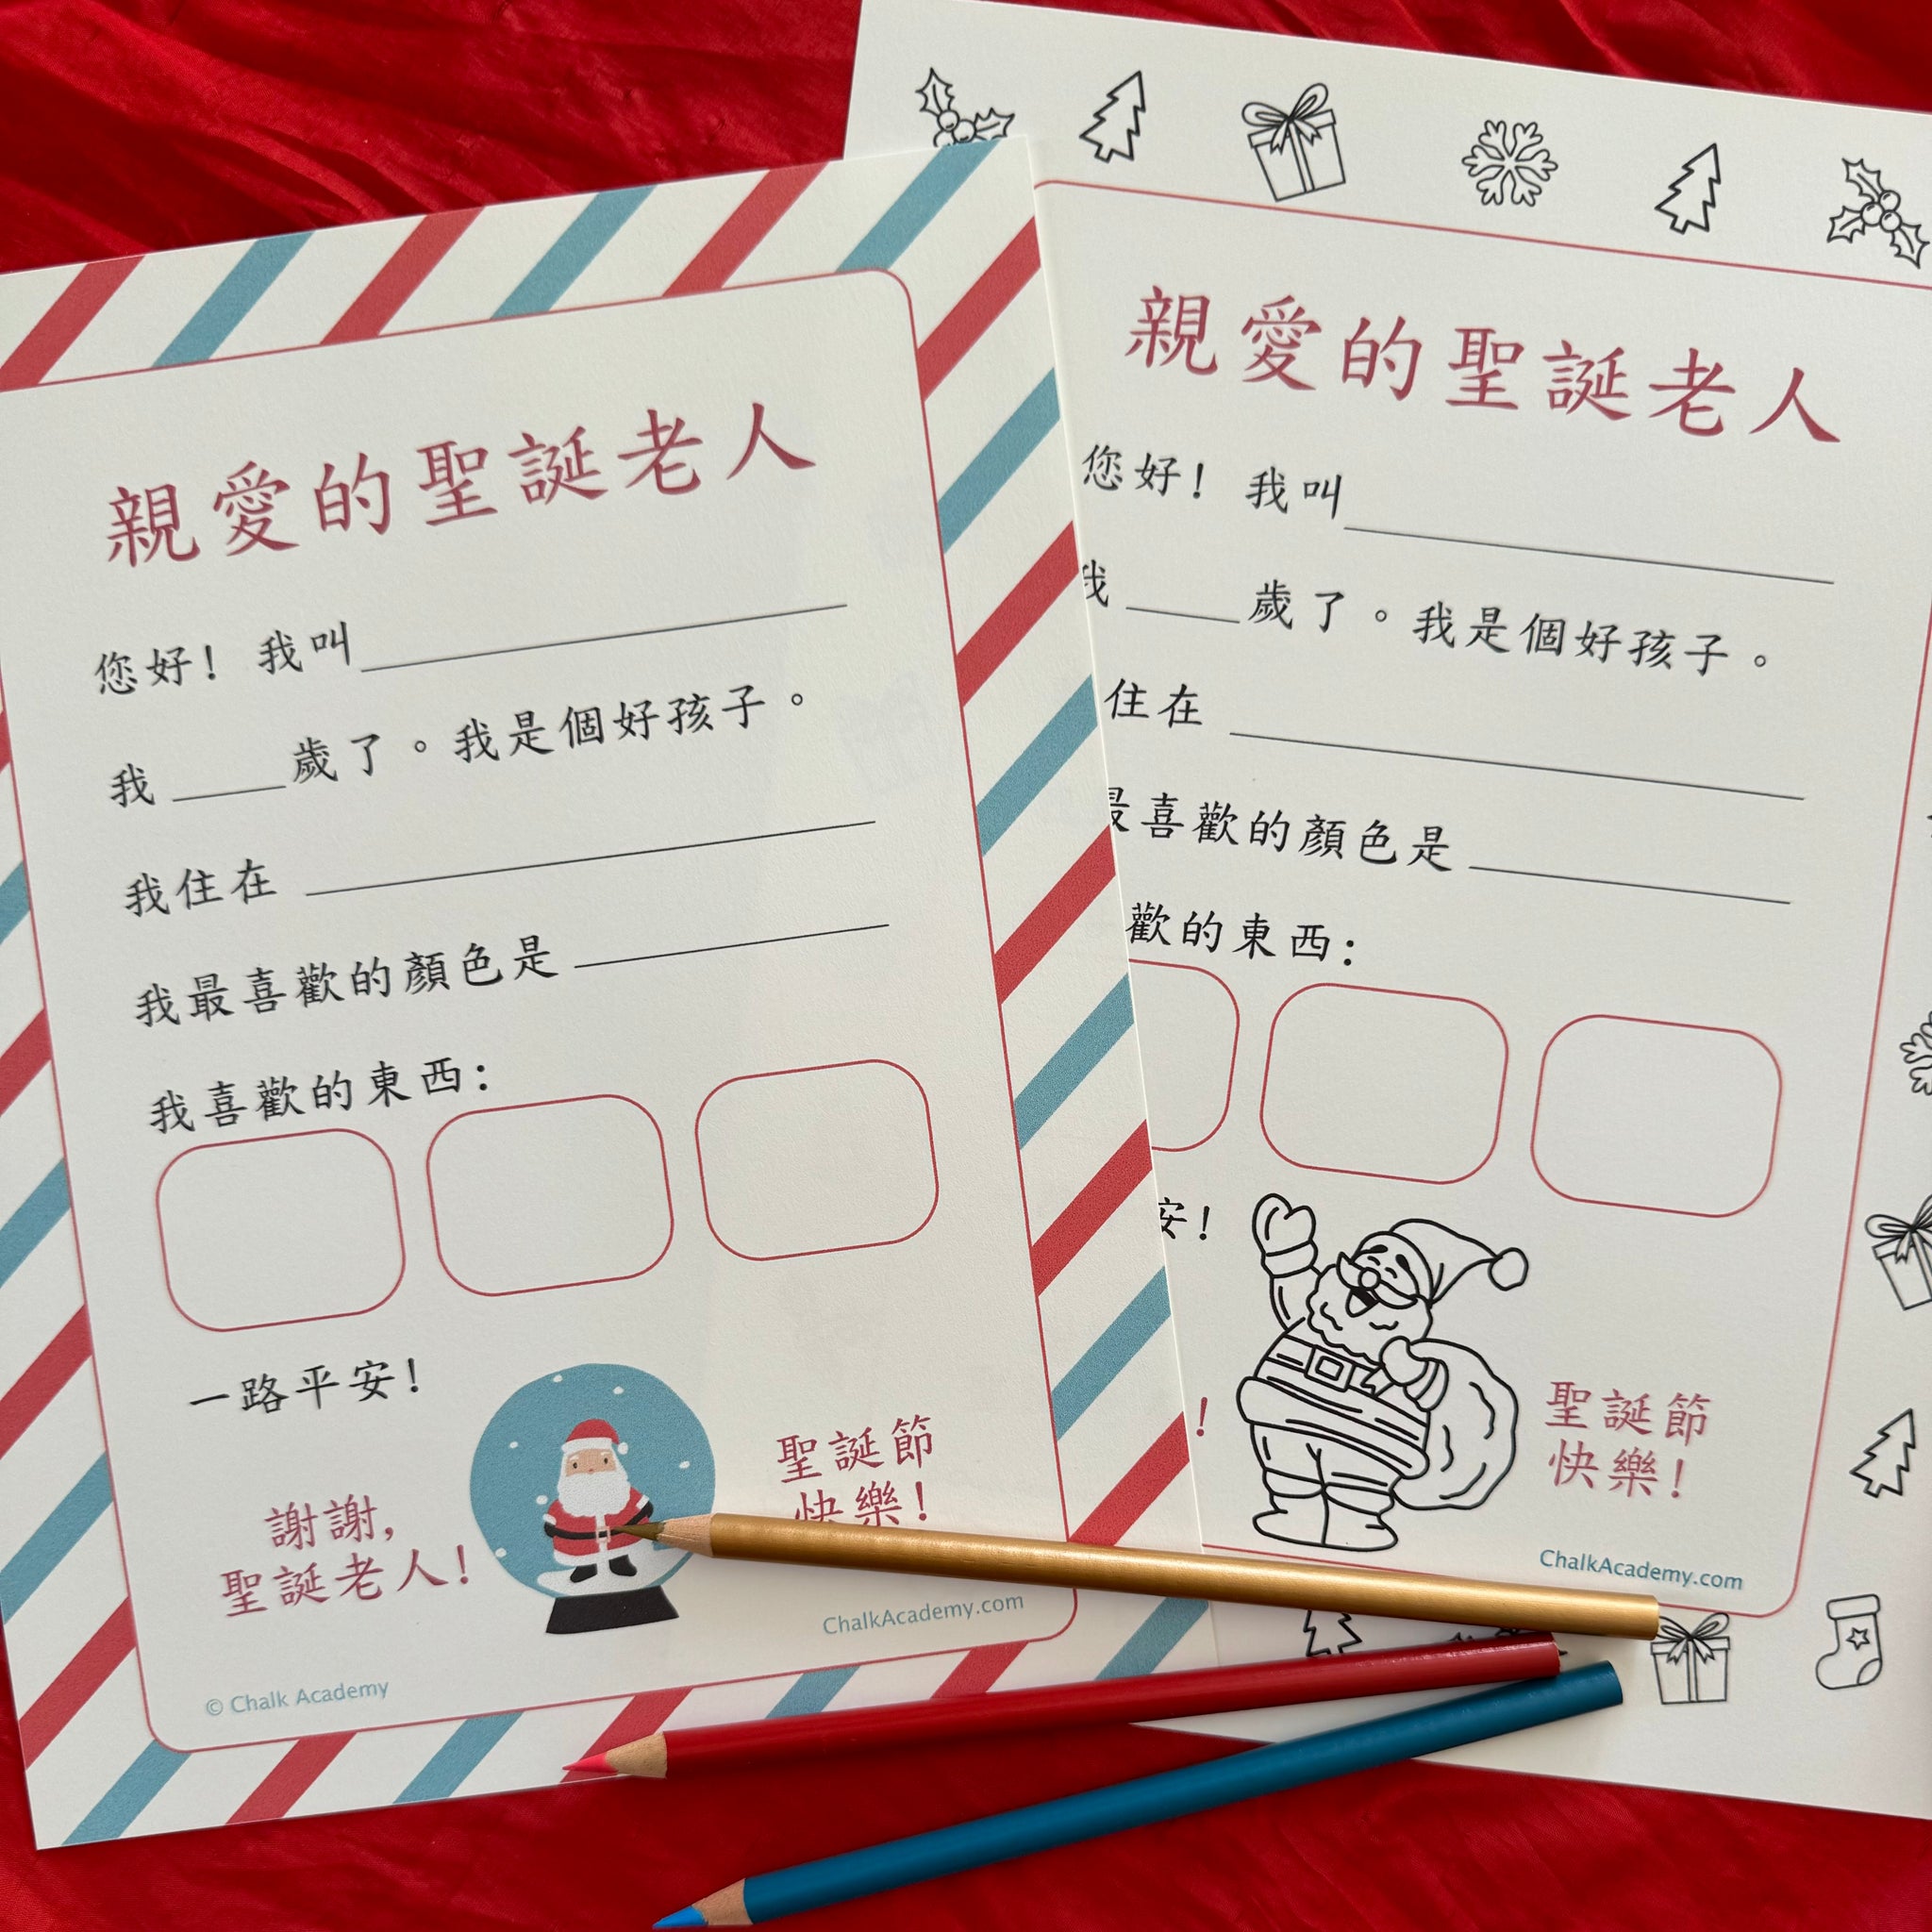 親愛的聖誕老人
您好！我叫
我 歲了。我是個好孩子。
我住在
我最喜歡的顏色是
我喜歡的東西：
一路平安！
謝謝，
聖誕老人！
聖誕節
快樂！
ChalkAcademy.com
© Chalk Academy
親愛的聖誕老人
您好！我叫
我 歲了。我是個好孩子。
住在
最喜歡的顏色是
歡的東西：
安！
！
聖誕節
快樂！
ChalkAcademy.com